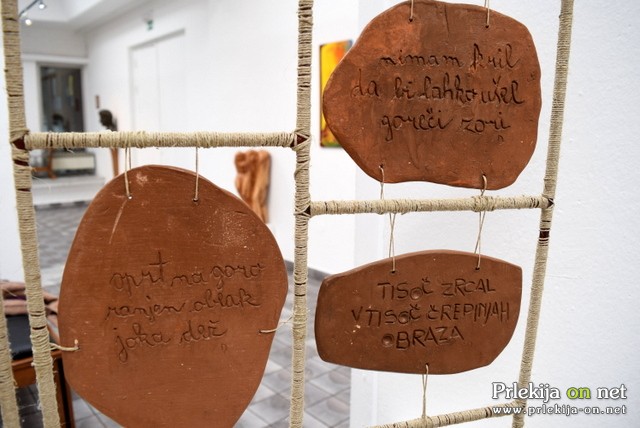 nimam kril
da bi lahko ušel
goreči zori
oprt na goro
ranjen oblak
joka dež
TISOČ ZRCAL
V TISOČ ČREPINJAH
OBRAZA
Prlekija on net
www.prlekija-on.net